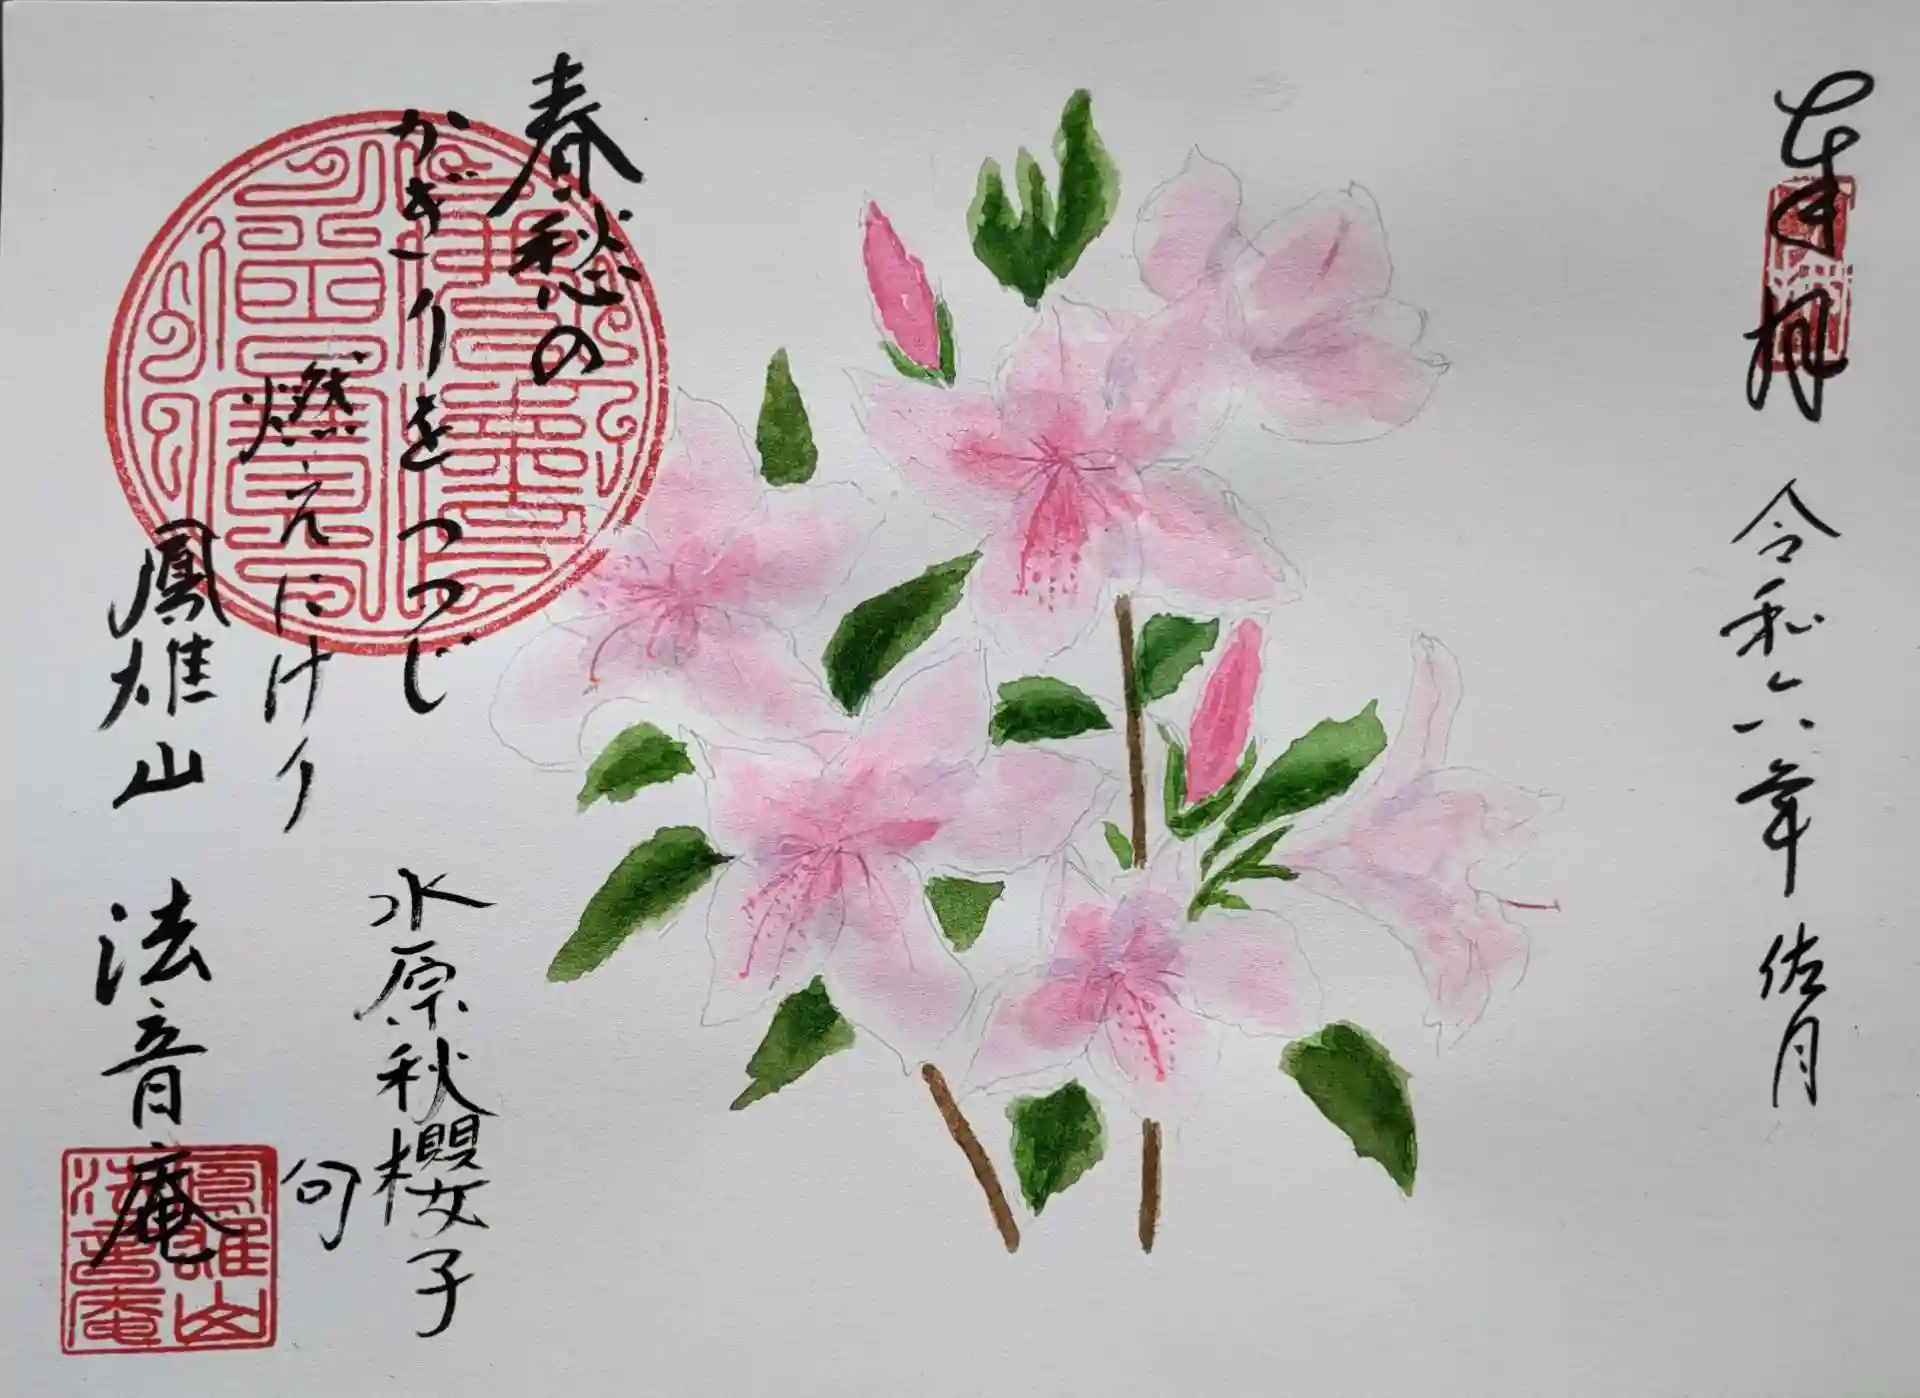 奉拝 令和六年 佐月
春愁の
かぎりを つつじ
燃えにけり
水原秋櫻子
句
鳳雄山 法音庵
鳳雄山
法音庵